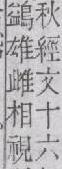 秋經文十六
鷁雄雌相視